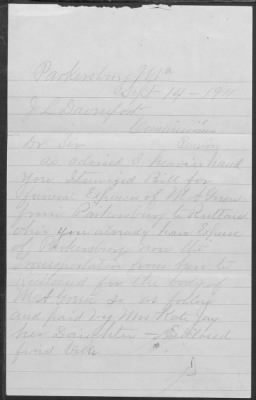 Parkersburg W Va
Sept 14 - 191
J L Davenport
Commissioner
Dr Sir
as advised I herein hand
you Itemized Bill for
Funeral Expenses of M A
from Parkersburg to Rutland
Ohio you already have Expense
of Parkersburg now the
transportation from here to
Rutland for the body of
M A is as follows
and paid by Mrs Kate
her Daughter - Enclosed
find bill